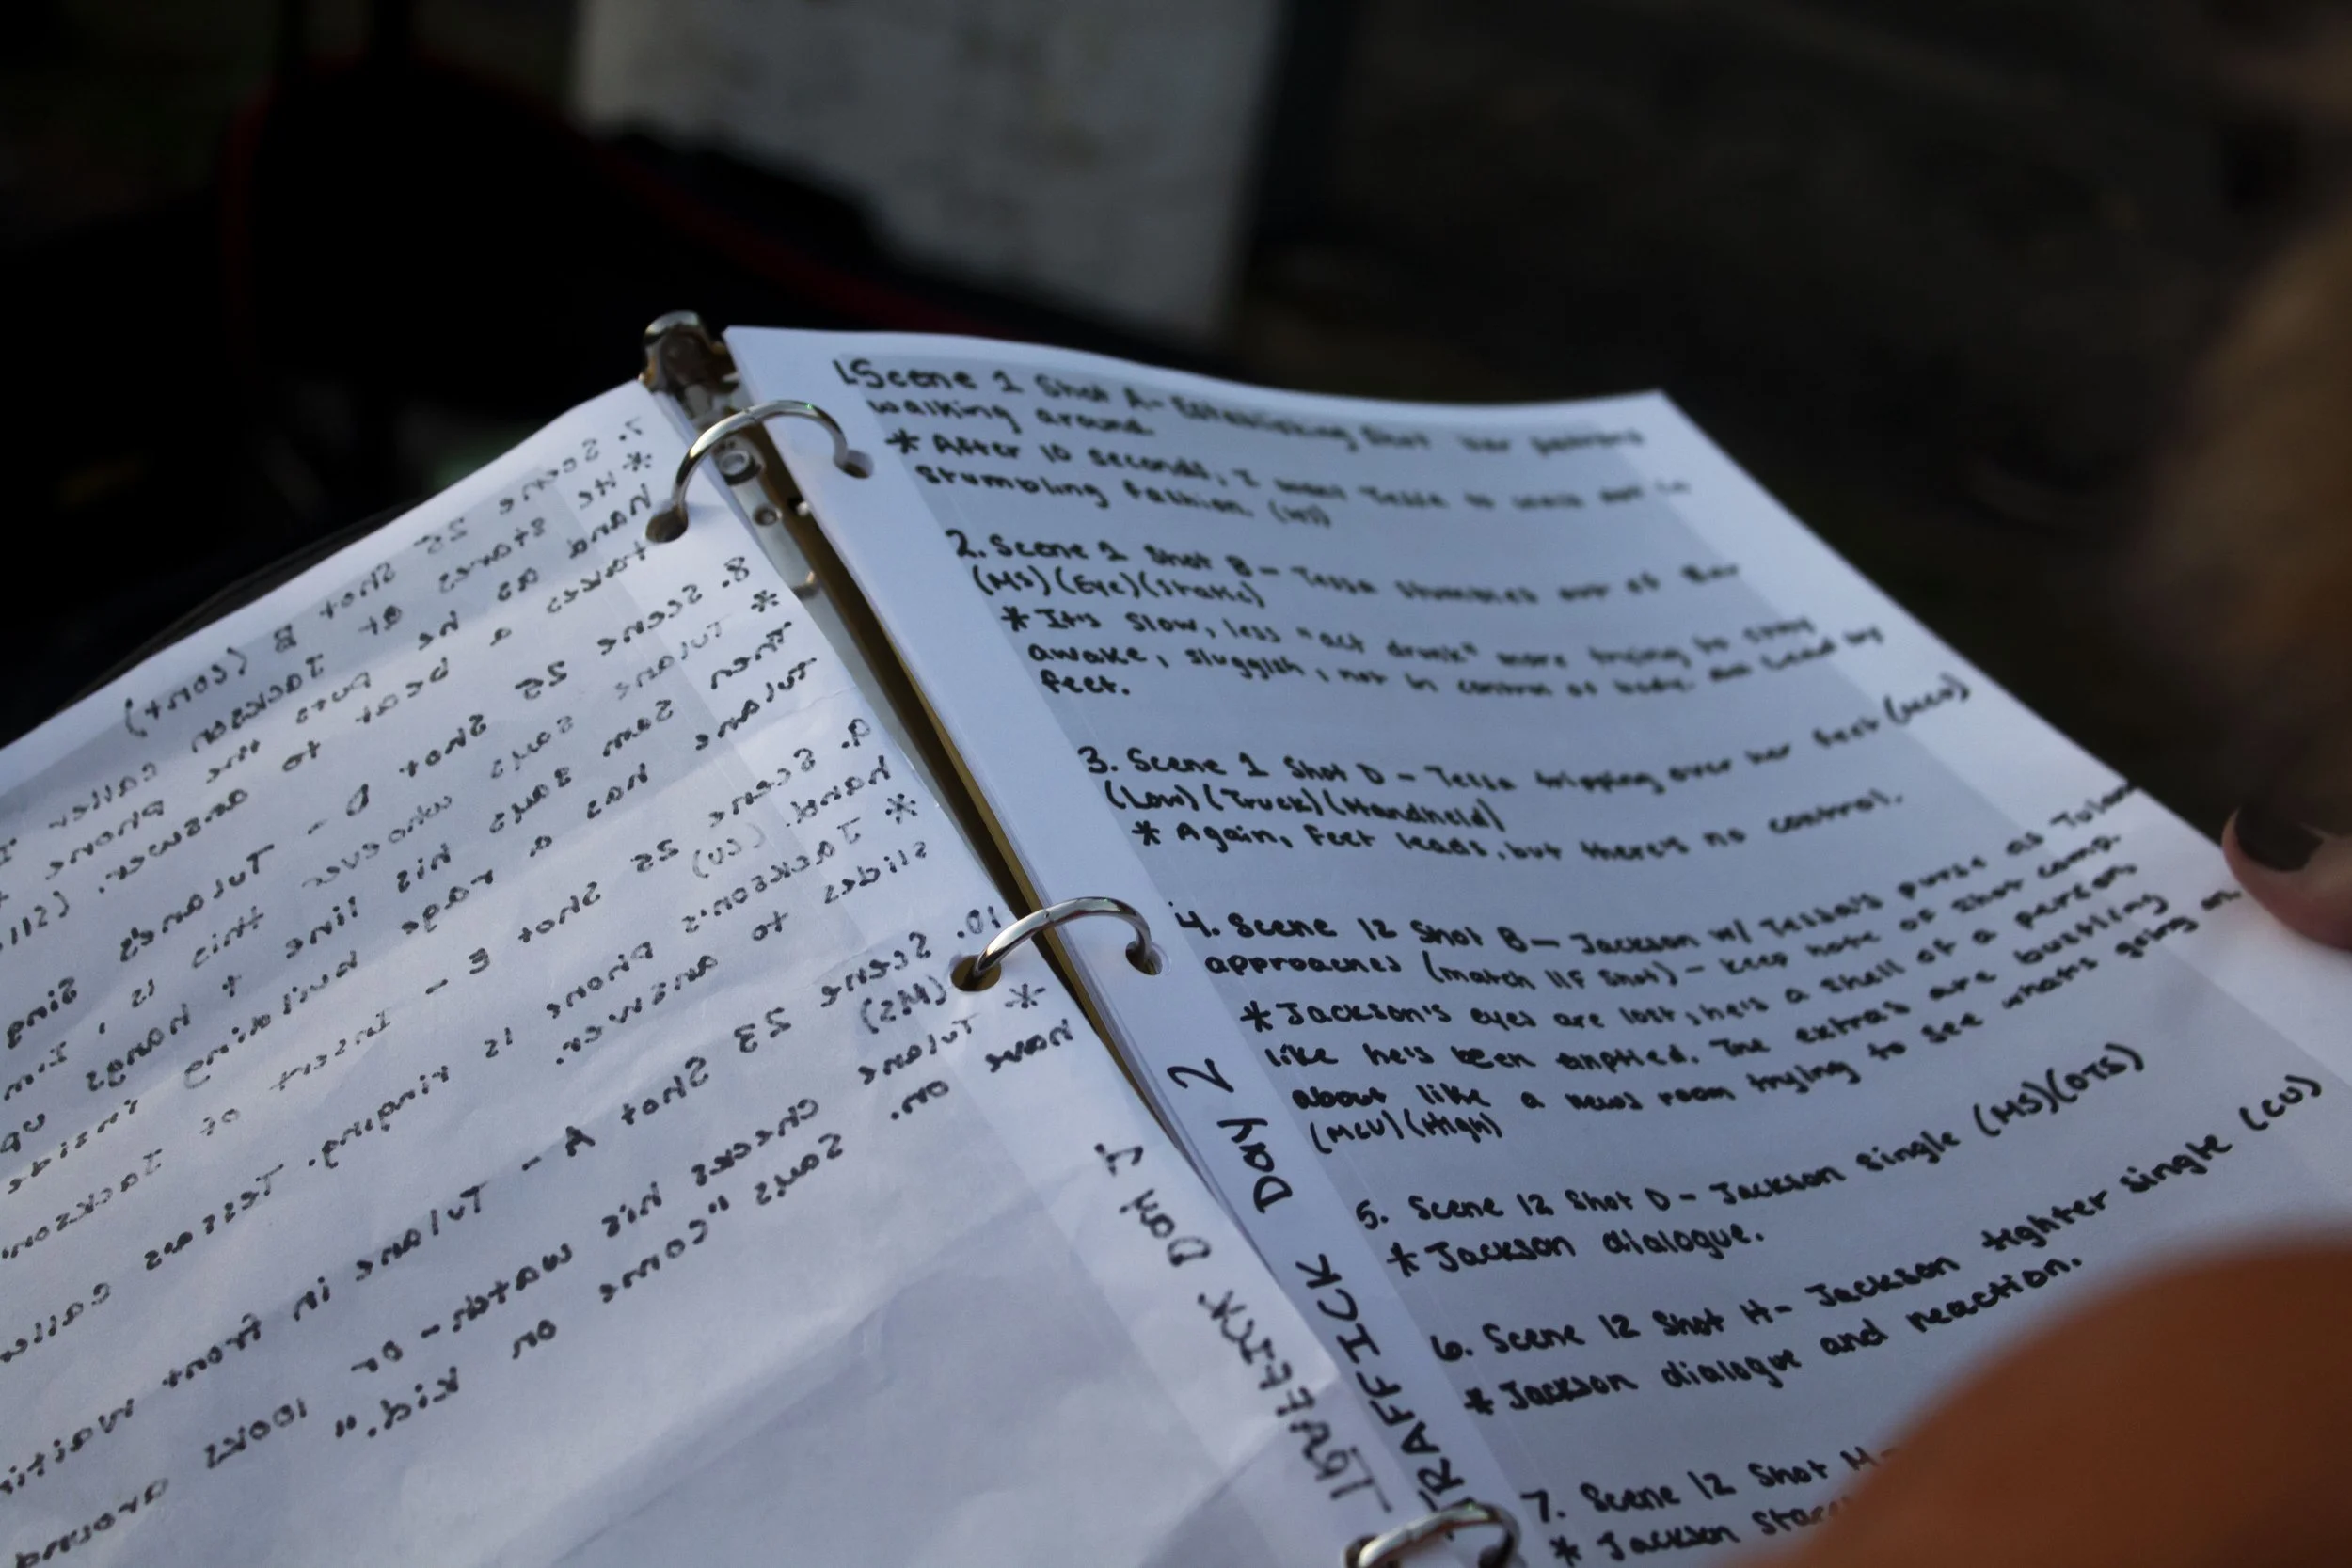 7. Scene 25 Shot B (cont)
* He stares at Jackson caller I
hand as he puts the phone
takes a beat to answer.
8. Scene 25 Shot D - Tulane's Sing
* Tulane says whoever this is, I'm
then Sam says his line + hangs up
Tulane has a rage building inside
9. Scene 25 Shot E - Insert of Jackson
hand. (CU)
* Jackson's phone is ringing. Tessa's caller
slides to answer.
10. Scene 23 Shot A - Tulane in front waitin
(MS)
* Tulane checks his watch - or looks around
have on. Says "come on kid."
TRAFFICK Day
1. Scene 1 Shot A- Establishing Shot Bar patrons
walking around
* After 10 seconds, I want Tessa to walk out in
stumbling fashion. (WS)
2. Scene 1 Shot B - Tessa stumbles out of Bar
(MS) (Eye) (Static)
* It's slow, less "act drunk" more trying to stay
awake, sluggish, not in control of body. lead by
feet.
3. Scene 1 Shot D - Tessa tripping over her feet (MCU)
(Low) (Truck) (Handheld)
* Again, Feet leads, but there's no control.
4. Scene 12 Shot B- Jackson w/ Tessa's purse as Tulane
approaches (match 11F Shot) - keep note of shot comp.
* Jackson's eyes are lost, he's a shell of a person
like he's been emptied. The extras are bustling
about like a news room trying to see what's going on
(MCU) (High)
5. Scene 12 Shot D - Jackson Single (MS) (OTS)
* Jackson dialogue.
6. Scene 12 Shot H- Jackson tighter Single (CU)
* Jackson dialogue and reaction.
7. Scene 12 Shot M-
* Jackson
TRAFFICK Day 2